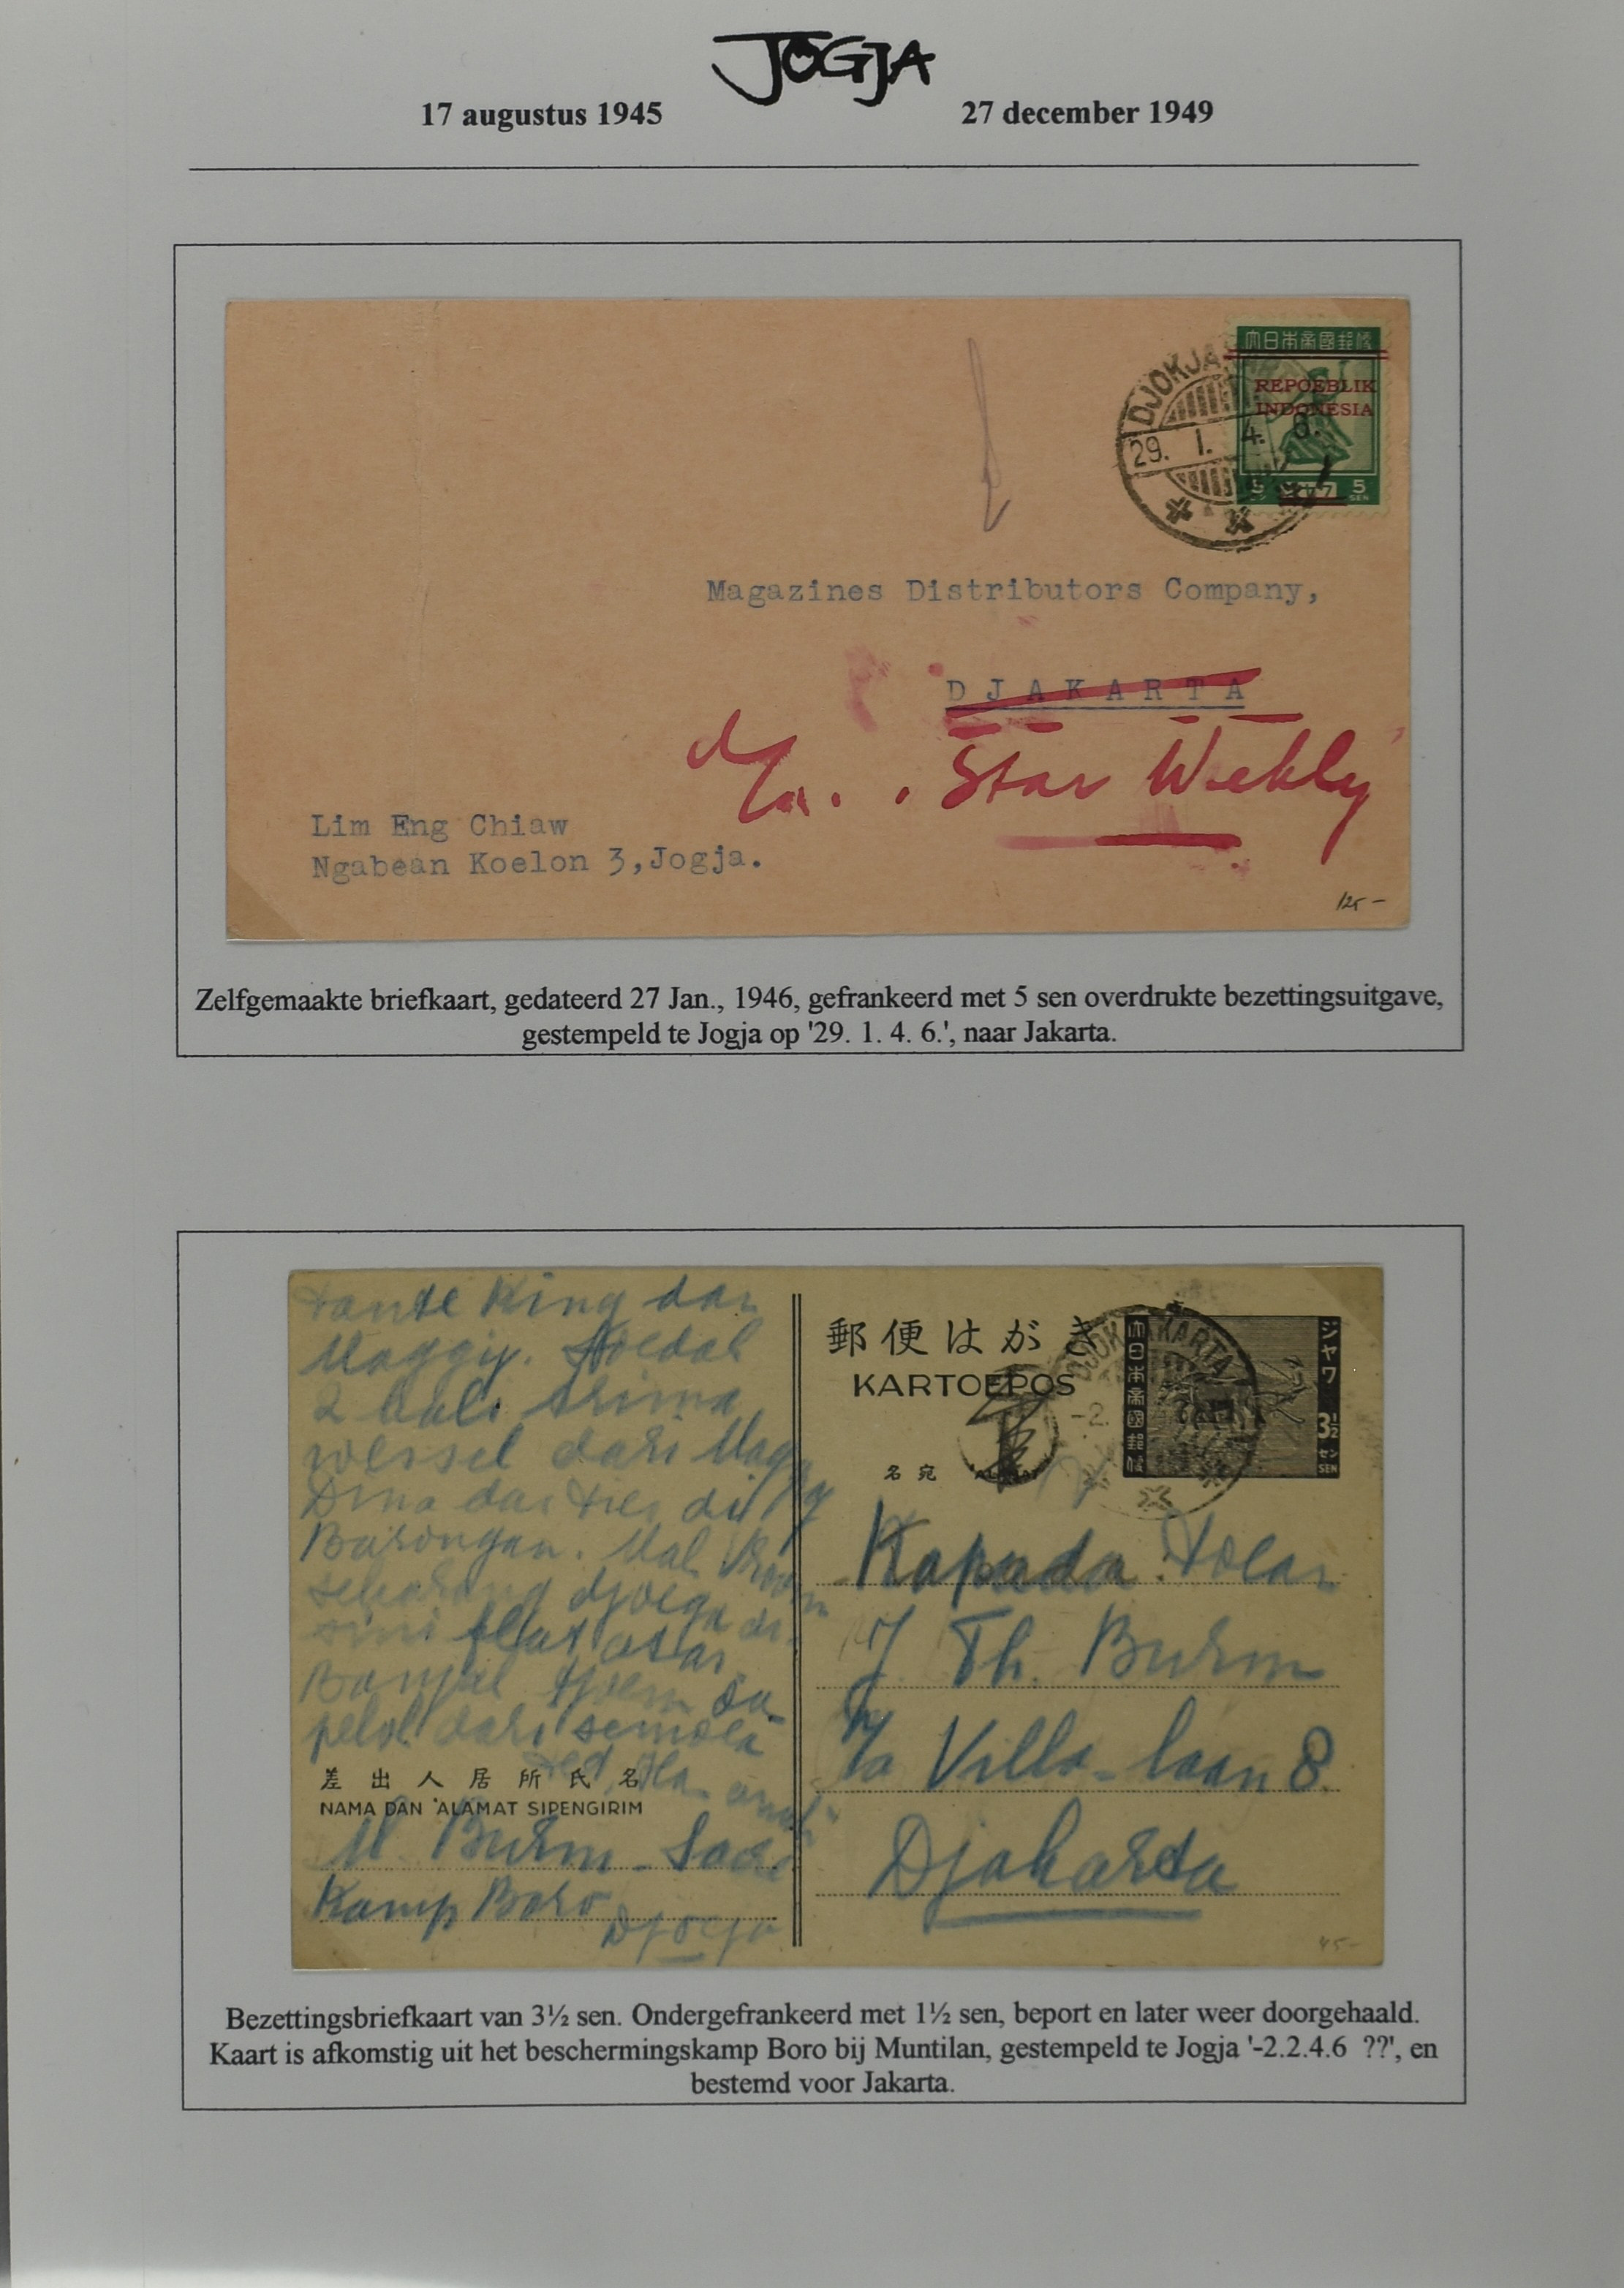 JOGJA
17 augustus 1945 27 december 1949
大日本帝國郵便
REPOEBLIK
INDONESIA
5 5
SEN
DJOKJA
29. 1. 4. 6.
Magazines Distributors Company,
DJAKARTA
Star Weekly
Lim Eng Chiaw
Ngabean Koelon 3,Jogja.
125 -
Zelfgemaakte briefkaart, gedateerd 27 Jan., 1946, gefrankeerd met 5 sen overdrukte bezettingsuitgave,
gestempeld te Jogja op '29. 1. 4. 6.', naar Jakarta.
tante King dan
Maggy. Soedah
2 kali trima
wessel dari Magg
Barongan. Mah
sekarang djoega di
sini
Banjak tjoem
dari semoea
差出人居所氏名
NAMA DAN 'ALAMAT SIPENGIRIM
M Burm
Kamp Boro
Djocja
郵便はがき
KARTOEPOS
名宛
T
DJOKJAKARTA
-2.
大日本帝國郵便
ジヤワ
3½
セン
SEN
Kapada Toean
J Th. Burm
p/a Villa-laan 8.
Djakarta
45-
Bezettingsbriefkaart van 3½ sen. Ondergefrankeerd met 1½ sen, beport en later weer doorgehaald.
Kaart is afkomstig uit het beschermingskamp Boro bij Muntilan, gestempeld te Jogja '-2.2.4.6 ??', en
bestemd voor Jakarta.